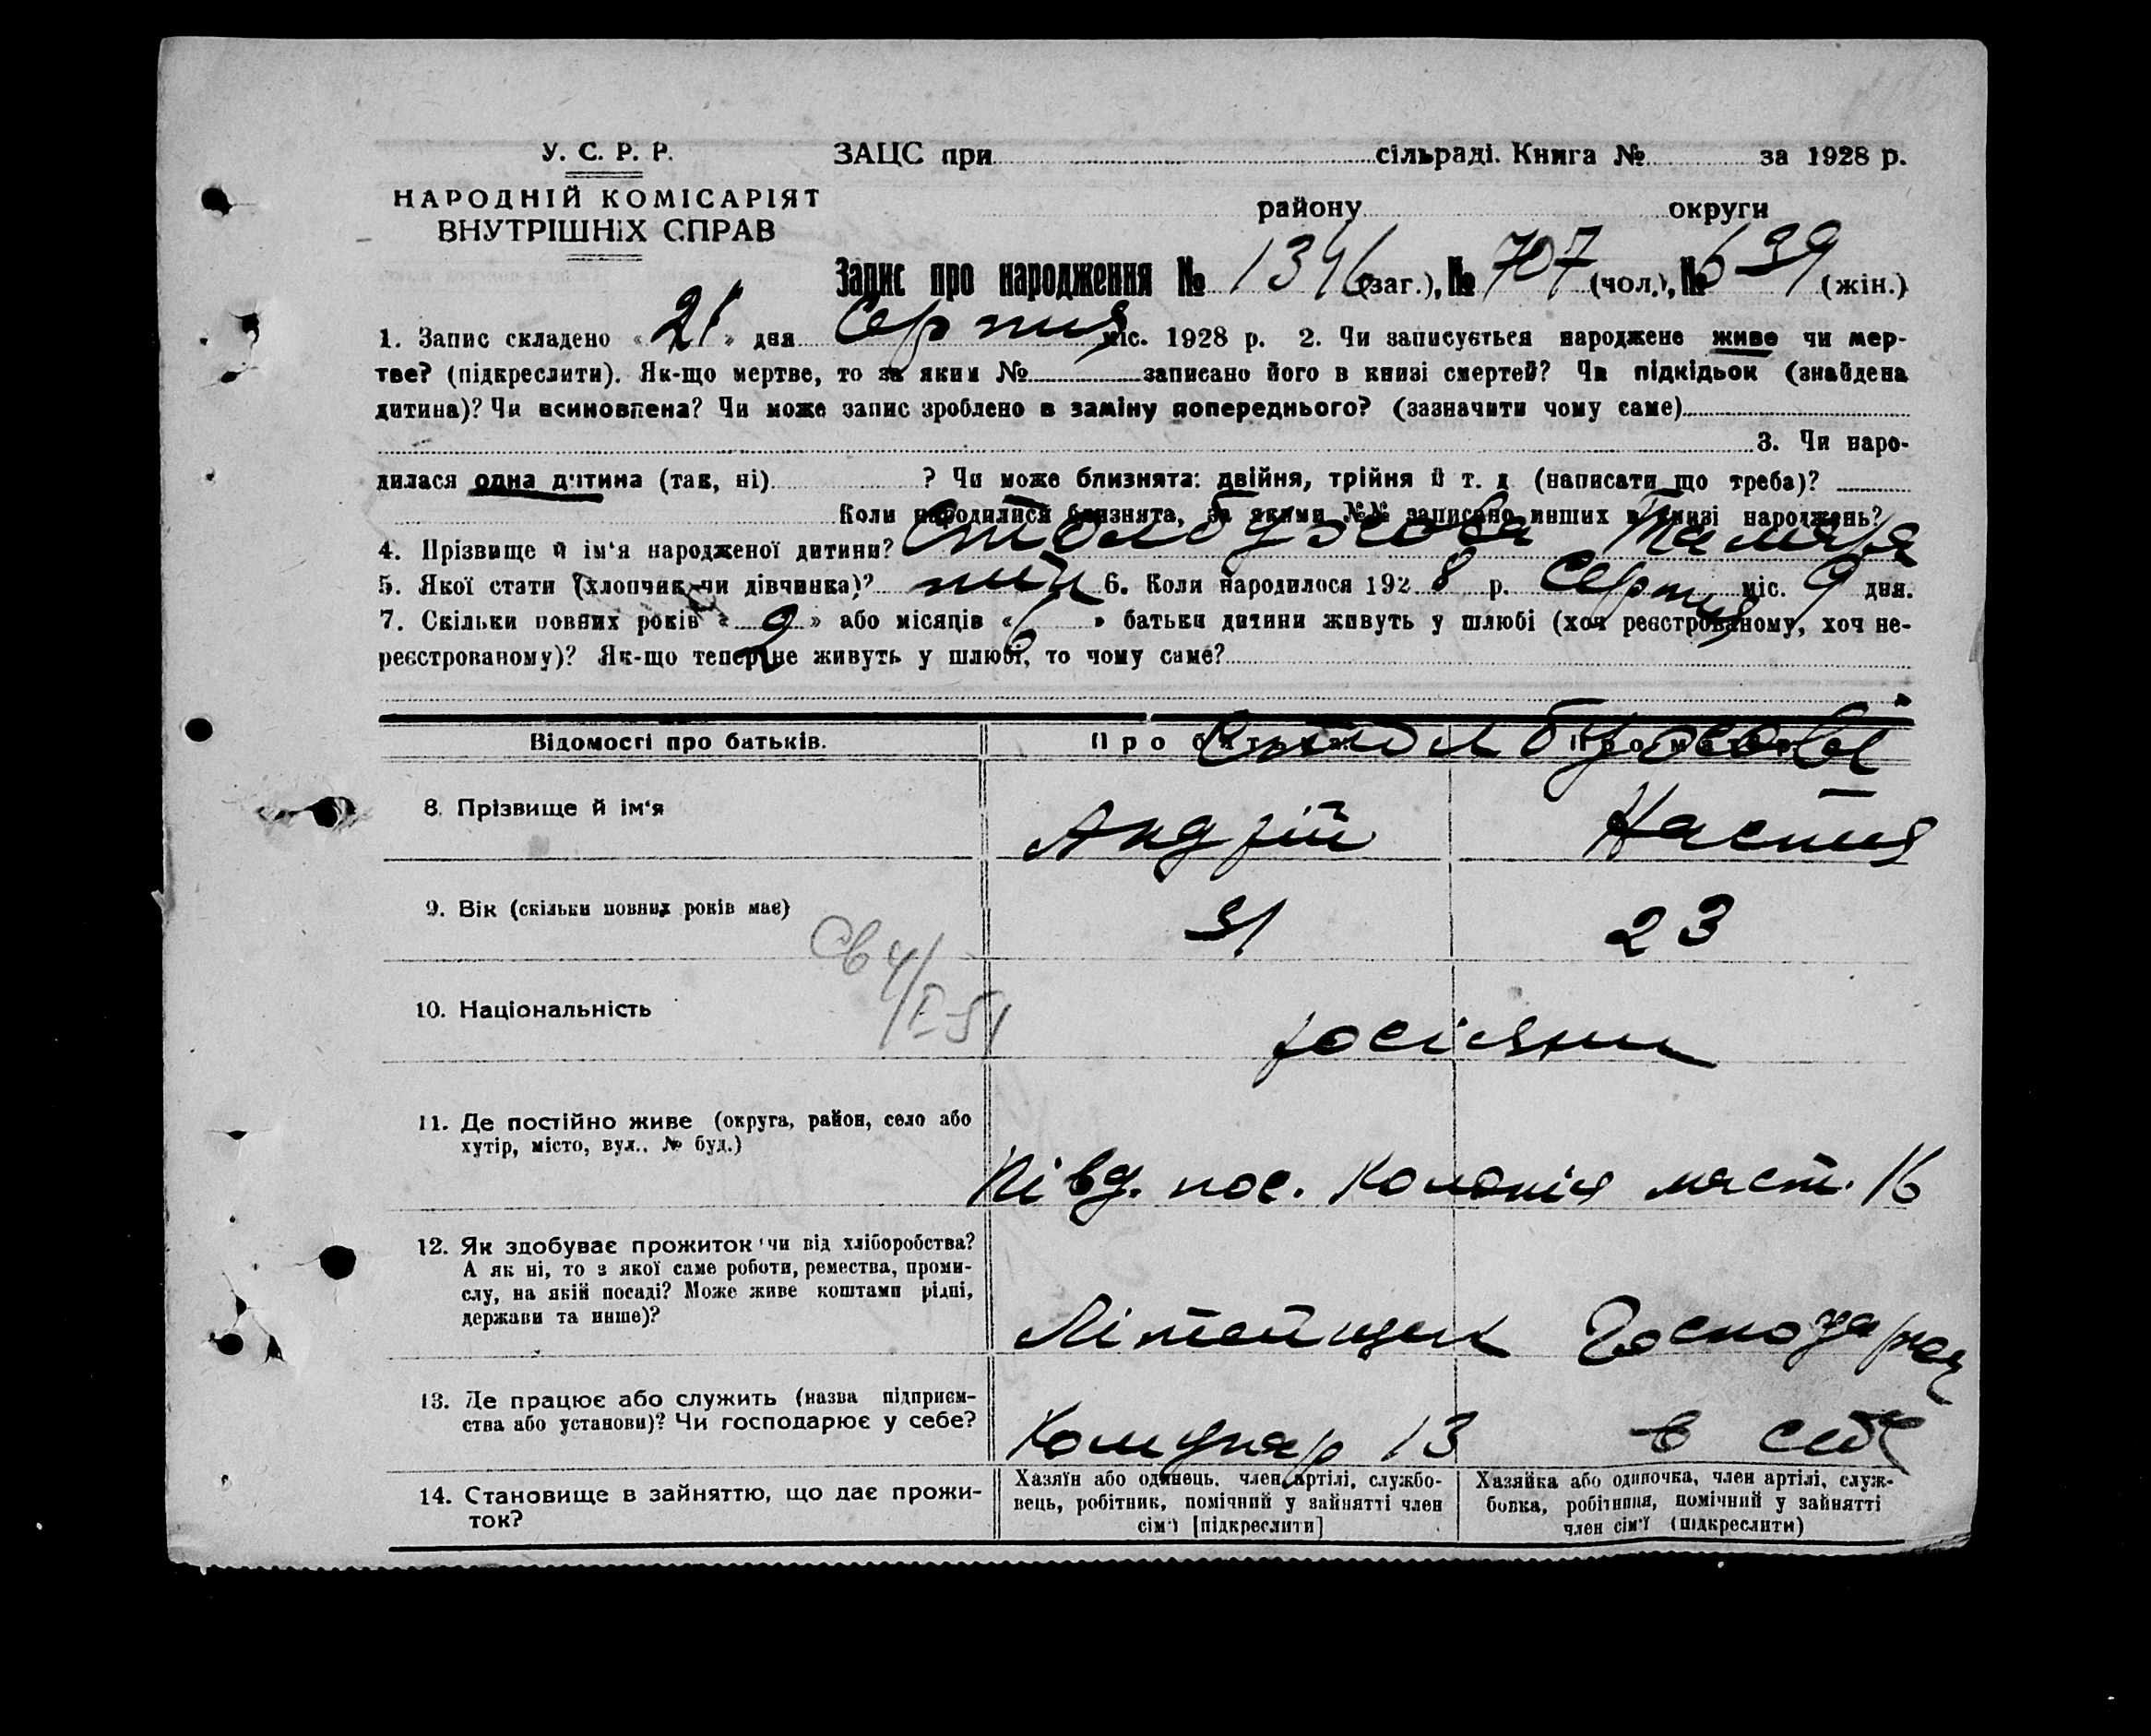 У. С. Р. Р.
НАРОДНІЙ КОМІСАРІЯТ
ВНУТРІШНІХ СПРАВ
ЗАЦС при сільраді. Книга № за 1928 р.
району округи
Запис про народження № 1346 (заг.), № 707 (чол.), № 639 (жін.)
1. Запис складено « 21 » дня Серпня міс. 1928 р. 2. Чи записується народжене живе чи мер-
тве? (підкреслити). Як-що мертве, то за яким № записано його в книзі смертей? Чи підкідьок (знайдена
дитина)? Чи всиновлена? Чи може запис зроблено в заміну попереднього? (зазначити чому саме)
3. Чи наро-
дилася одна дитина (так, ні) ? Чи може близнята: двійня, трійня й т. д (написати що треба)?
Коли народилися близнята, за якими №№ записано инших в книзі народжень?
4. Прізвище й ім'я народженої дитини? Столбусова Тамара
5. Якої стати (хлопчик чи дівчинка)? 6. Коли народилося 1928 р. Серпня міс. 9 дня.
7. Скільки повних років « 2 » або місяців « 6 » батьки дитини живуть у шлюбі (хоч реєстрованому, хоч не-
реєстрованому)? Як-що тепер не живуть у шлюбі, то чому саме?
Відомості про батьків. Про батька Про матір
8. Прізвище й ім'я Андрій Настя
9. Вік (скільки повних років має) 31 23
Св 4/I-51
10. Національність росіяни
11. Де постійно живе (округа, район, село або
хутір, місто, вул., № буд.)
Півд. пос. Колонія 16
12. Як здобуває прожиток чи від хліборобства?
А як ні, то з якої саме роботи, ремества, проми-
слу, на якій посаді? Може живе коштами рідні,
держави та инше)?
Літейщик Господарює
13. Де працює або служить (назва підприєм-
ства або установи)? Чи господарює у себе?
Комунар 13 в себе
14. Становище в зайняттю, що дає прожи-
ток?
Хазяїн або одинець, член артілі, службо-
вець, робітник, помічний у зайнятті член
сім'ї [підкреслити]
Хазяйка або одиночка, член артілі, служ-
бовка, робітниця, помічний у зайнятті
член сім'ї (підкреслити)